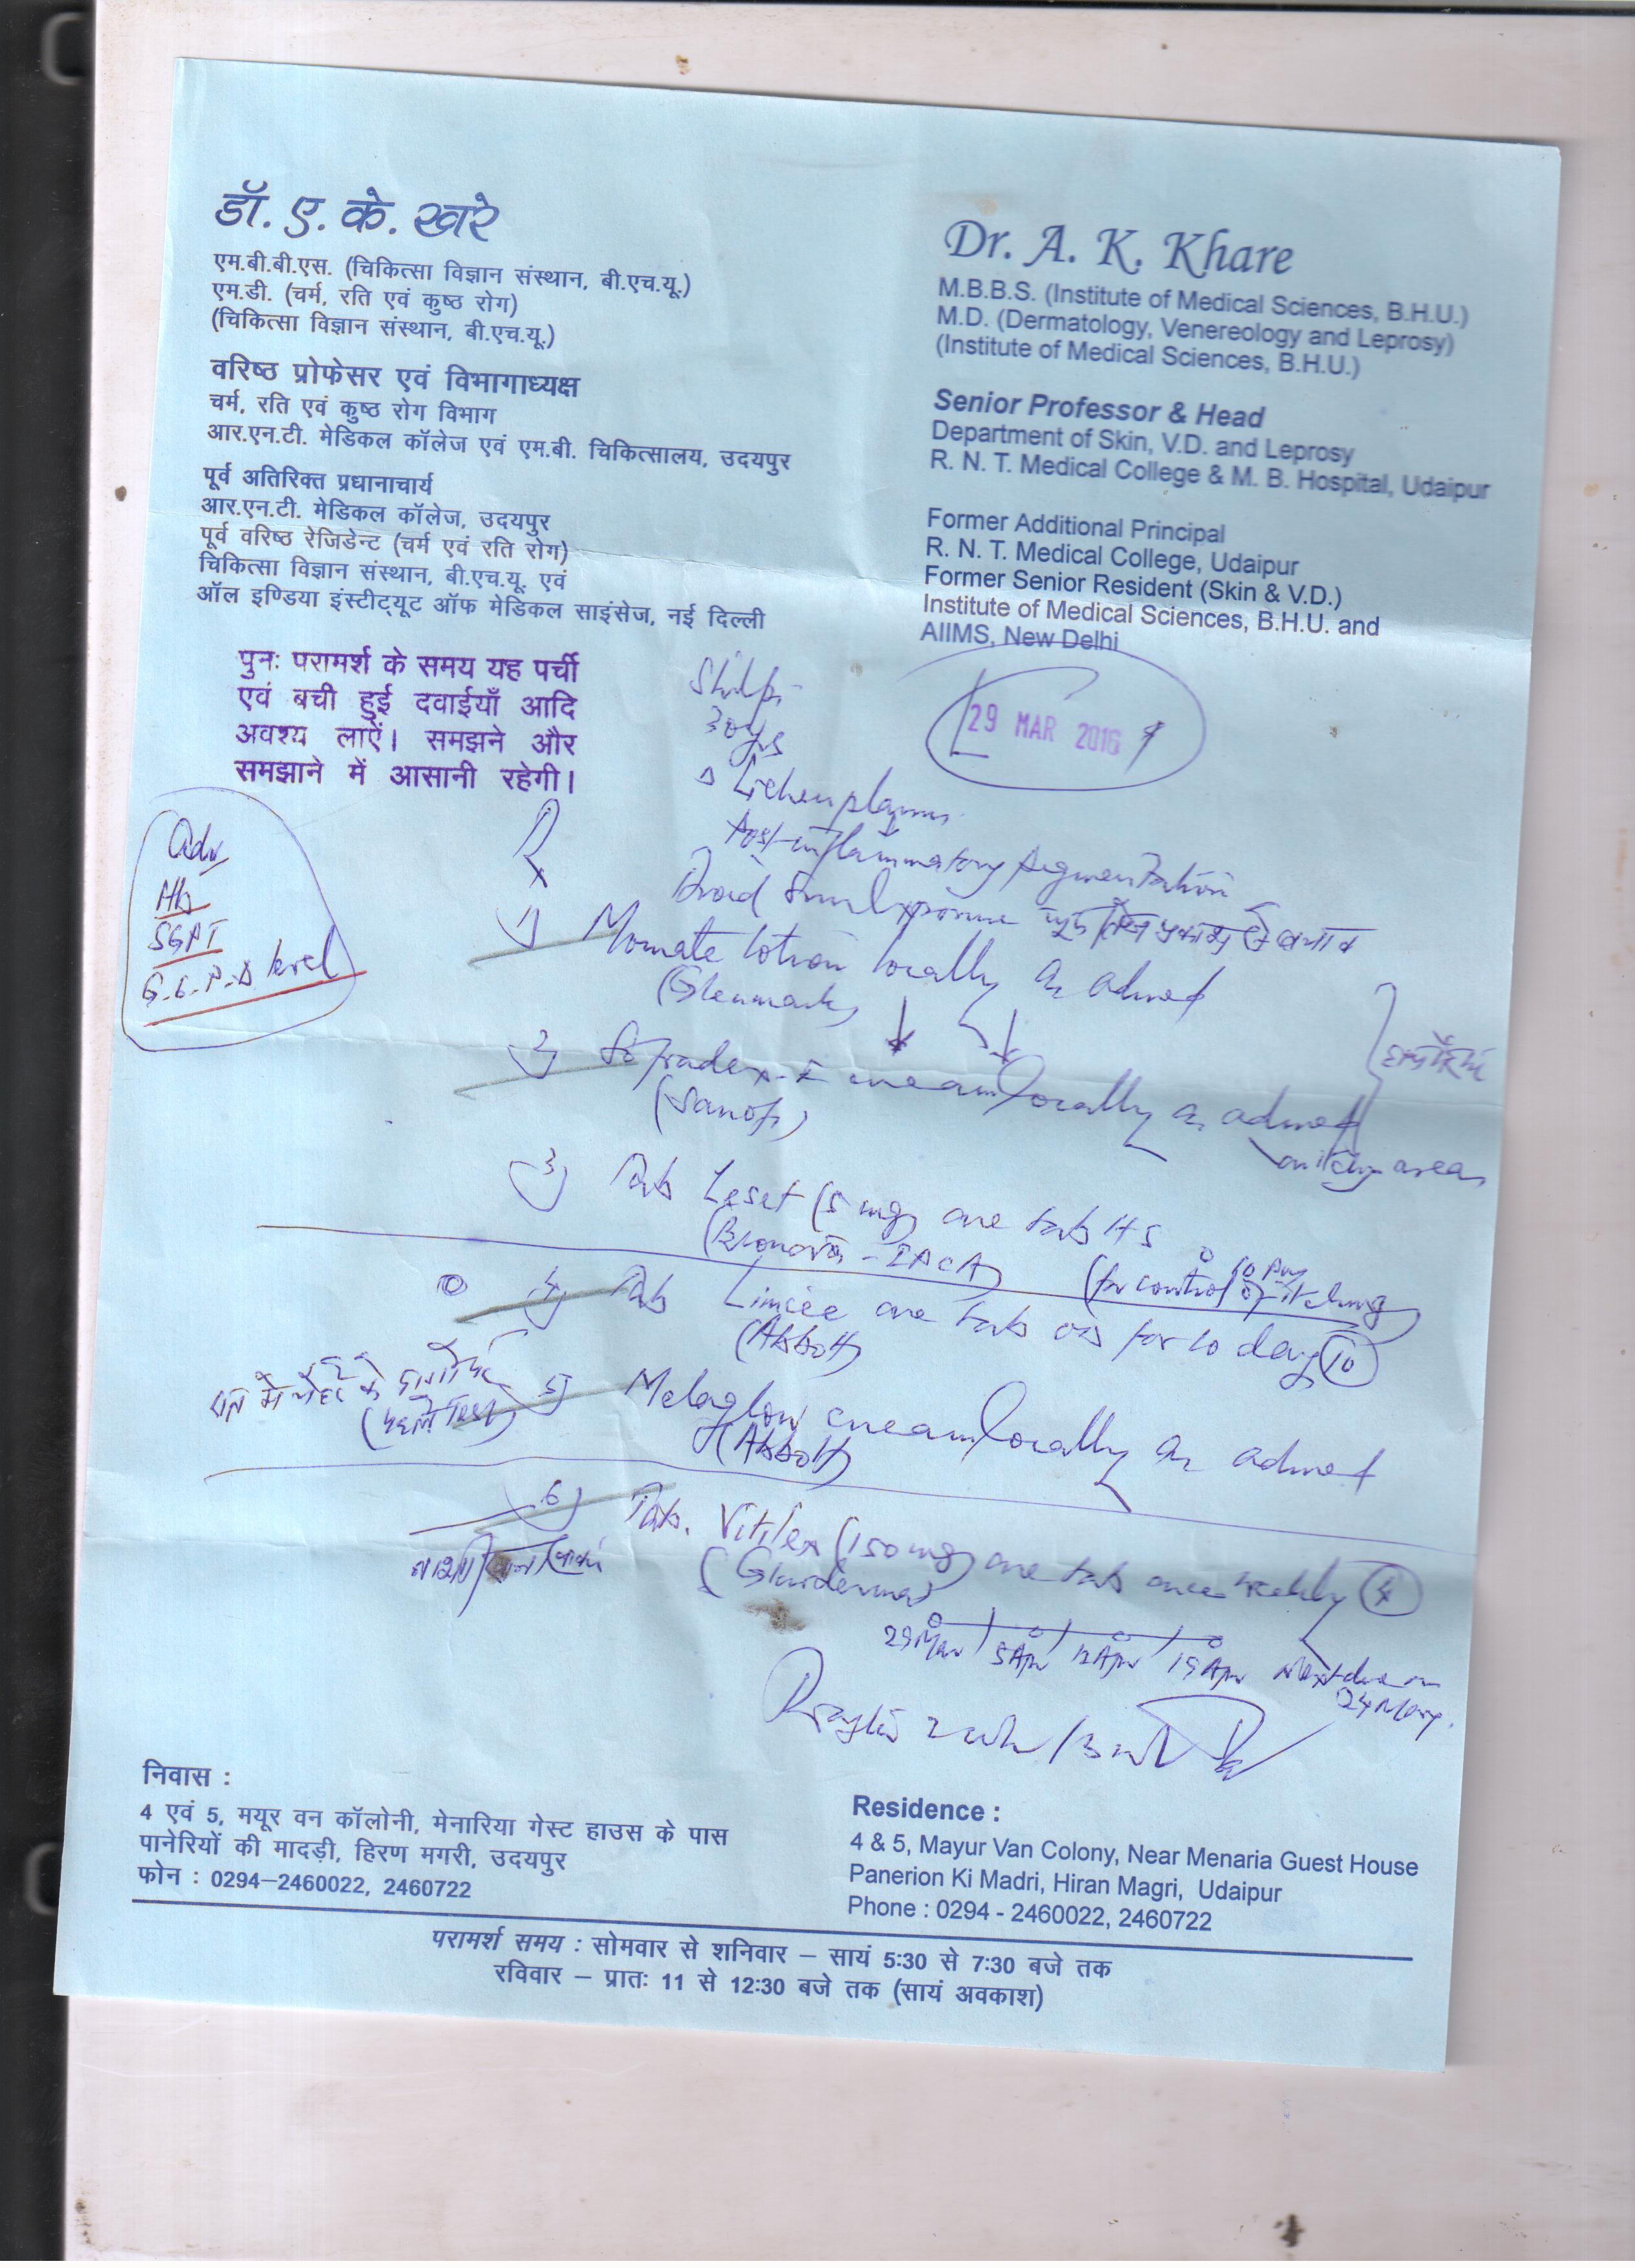 डॉ. ए. के. खरे
एम.बी.बी.एस. (चिकित्सा विज्ञान संस्थान, बी.एच.यू.)
एम.डी. (चर्म, रति एवं कुष्ठ रोग)
(चिकित्सा विज्ञान संस्थान, बी.एच.यू.)
वरिष्ठ प्रोफेसर एवं विभागाध्यक्ष
चर्म, रति एवं कुष्ठ रोग विभाग
आर.एन.टी. मेडिकल कॉलेज एवं एम.बी. चिकित्सालय, उदयपुर
पूर्व अतिरिक्त प्रधानाचार्य
आर.एन.टी. मेडिकल कॉलेज, उदयपुर
पूर्व वरिष्ठ रेजिडेन्ट (चर्म एवं रति रोग)
चिकित्सा विज्ञान संस्थान, बी.एच.यू. एवं
ऑल इण्डिया इंस्टीट्यूट ऑफ मेडिकल साइंसेज, नई दिल्ली
Dr. A. K. Khare
M.B.B.S. (Institute of Medical Sciences, B.H.U.)
M.D. (Dermatology, Venereology and Leprosy)
(Institute of Medical Sciences, B.H.U.)
Senior Professor & Head
Department of Skin, V.D. and Leprosy
R. N. T. Medical College & M. B. Hospital, Udaipur
Former Additional Principal
R. N. T. Medical College, Udaipur
Former Senior Resident (Skin & V.D.)
Institute of Medical Sciences, B.H.U. and
AIIMS, New Delhi
पुनः परामर्श के समय यह पर्ची
एवं बची हुई दवाईयाँ आदि
अवश्य लाऐं। समझने और
समझाने में आसानी रहेगी।
29 MAR 2016
30yrs
Δ Lichen planus
Post-inflammatory pigmentation
Avoid sun exposure
Adv
Hb
SGPT
G-6-P-D level
1) Momate lotion locally as advised
(Glenmark)
2) Sofradex-F cream locally as advised
(Sanofi)
on itchy areas
3) Tab Leset (5 mg) one tab HS
(for control of itching)
4) Tab Limcee one tab OD for 10 days 10
(Abbott)
5) Melaglow cream locally as advised
(Abbott)
6) Tab. Vitilex (150 mg) one tab once weekly 4
29 Mar / 5 Apr / 12 Apr / 19 Apr Next due on
निवास :
4 एवं 5, मयूर वन कॉलोनी, मेनारिया गेस्ट हाउस के पास
पानेरियों की मादड़ी, हिरण मगरी, उदयपुर
फोन : 0294–2460022, 2460722
Residence :
4 & 5, Mayur Van Colony, Near Menaria Guest House
Panerion Ki Madri, Hiran Magri, Udaipur
Phone : 0294 - 2460022, 2460722
परामर्श समय : सोमवार से शनिवार – सायं 5:30 से 7:30 बजे तक
रविवार – प्रातः 11 से 12:30 बजे तक (सायं अवकाश)